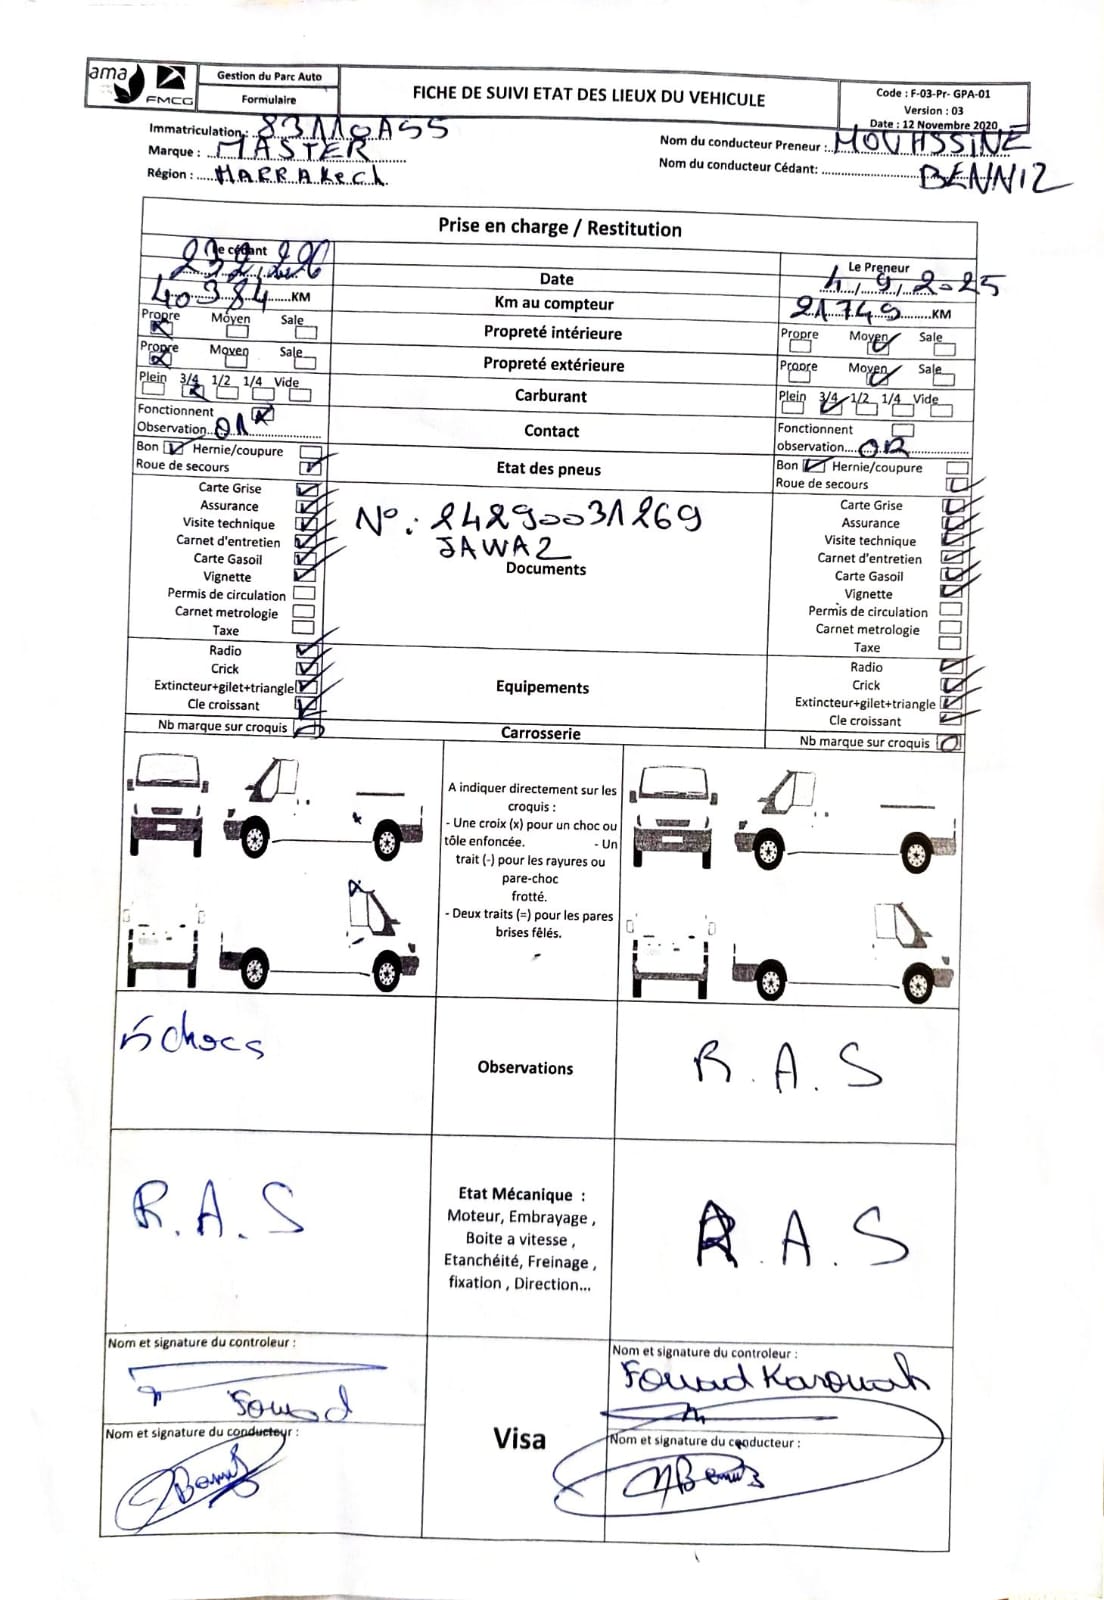 ama
FMCG
Gestion du Parc Auto
Formulaire
FICHE DE SUIVI ETAT DES LIEUX DU VEHICULE
Code : F-03-Pr- GPA-01
Version : 03
Date : 12 Novembre 2020
Immatriculation :
Marque : MASTER
Région : MARRAKech
Nom du conducteur Preneur : MOUHSSINE
Nom du conducteur Cédant: BENNIZ
Prise en charge / Restitution
Le cédant
Date
Le Preneur
9, 2025
40384 KM
Km au compteur
21749 KM
Propre Moyen Sale
Propreté intérieure
Propre Moyen Sale
Propre Moyen Sale
Propreté extérieure
Propre Moyen Sale
Plein 3/4 1/2 1/4 Vide
Carburant
Plein 3/4 1/2 1/4 Vide
Fonctionnent
Observation
Contact
Fonctionnent
observation
Bon Hernie/coupure
Roue de secours
Etat des pneus
Bon Hernie/coupure
Roue de secours
Carte Grise
Assurance
Visite technique
Carnet d'entretien
Carte Gasoil
Vignette
Permis de circulation
Carnet metrologie
Taxe
N°: 24290031269
JAWAZ
Documents
Carte Grise
Assurance
Visite technique
Carnet d'entretien
Carte Gasoil
Vignette
Permis de circulation
Carnet metrologie
Taxe
Radio
Crick
Extincteur+gilet+triangle
Cle croissant
Equipements
Radio
Crick
Extincteur+gilet+triangle
Cle croissant
Nb marque sur croquis
Carrosserie
Nb marque sur croquis 0
A indiquer directement sur les
croquis :
- Une croix (x) pour un choc ou
tôle enfoncée. - Un
trait (-) pour les rayures ou
pare-choc
frotté.
- Deux traits (=) pour les pares
brises fêlés.
5 chocs
Observations
R.A.S
R.A.S
Etat Mécanique :
Moteur, Embrayage ,
Boite a vitesse ,
Etanchéité, Freinage ,
fixation , Direction...
R.A.S
Nom et signature du controleur :
Fouad
Nom et signature du conducteur :
Visa
Nom et signature du controleur :
Fouad Karouach
Nom et signature du conducteur :